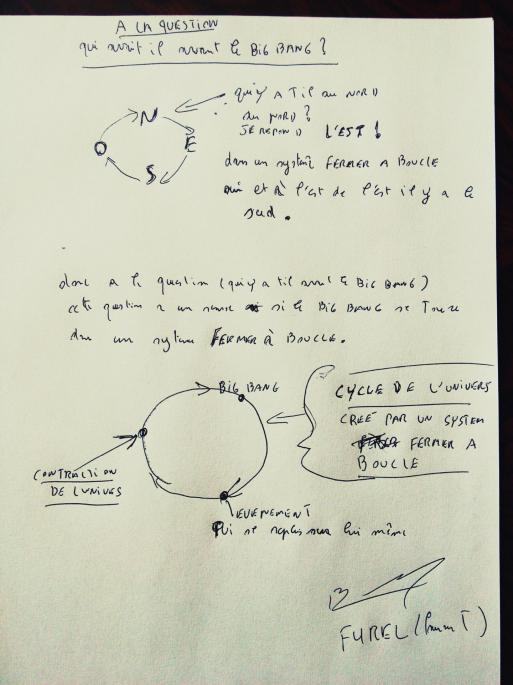 A LA QUESTION
qui avait il avant le BIG BANG ?
N
E
S
O
qui y A T il au NORD
du NORD ?
JE REPOND L'EST !
dans un système FERMER A BOUCLE
oui et à l'est de l'est il y a le
sud.
donc a la question (qui y a t il avant le BIG BANG)
cette question a un sens si le BIG BANG se Trouve
dans un système FERMER À BOUCLE.
BIG BANG
CYCLE DE L'UNIVERS
CREÉ PAR UN SYSTEM
FERMER A
BOUCLE
CONTRACTION
DE L'UNIVES
EVENEMENT
Qui se replis sur lui même
FUREL